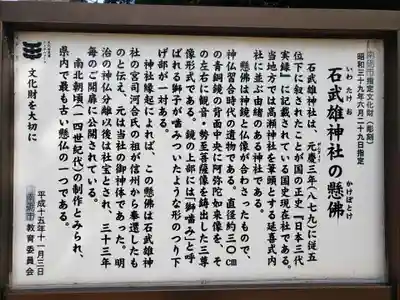 南砺市指定文化財(彫刻)
昭和三十九年六月二十九日指定
石武雄神社の懸佛
いわ たけ お かけぼとけ
石武雄神社は、元慶三年(八七九)に従五
がんぎょう
位下に叙されたことが国の正史『日本三代
実録』に記載されている国史現在社である。
当地方では高瀬神社を筆頭とする延喜式内
社に並ぶ由緒のある神社である。
懸佛は神鏡と仏像が合わさったもので、
神仏習合時代の遺物である。直径約三〇㎝
の青銅鏡の背面中央に阿弥陀如来像を、そ
の左右に観音・勢至菩薩像を鋳出した三尊
像形式である。鏡の上部には「獅噛み」と呼
ばれる獅子が噛みついたような形のつり下
げ部が一対ある。
神社縁起によれば、この懸佛は石武雄神
社の宮司河合氏の祖が信州から奉還したも
のと伝え、元は当社の御神体であった。明
治の神仏分離以後は社宝とされ、三十三年
毎のご開扉に公開されている。
南北朝頃(一四世紀)の制作とみられ、
県内で最も古い懸仏の一つである。
平成十五年十一月三日
南砺市教育委員会
文化財を大切に